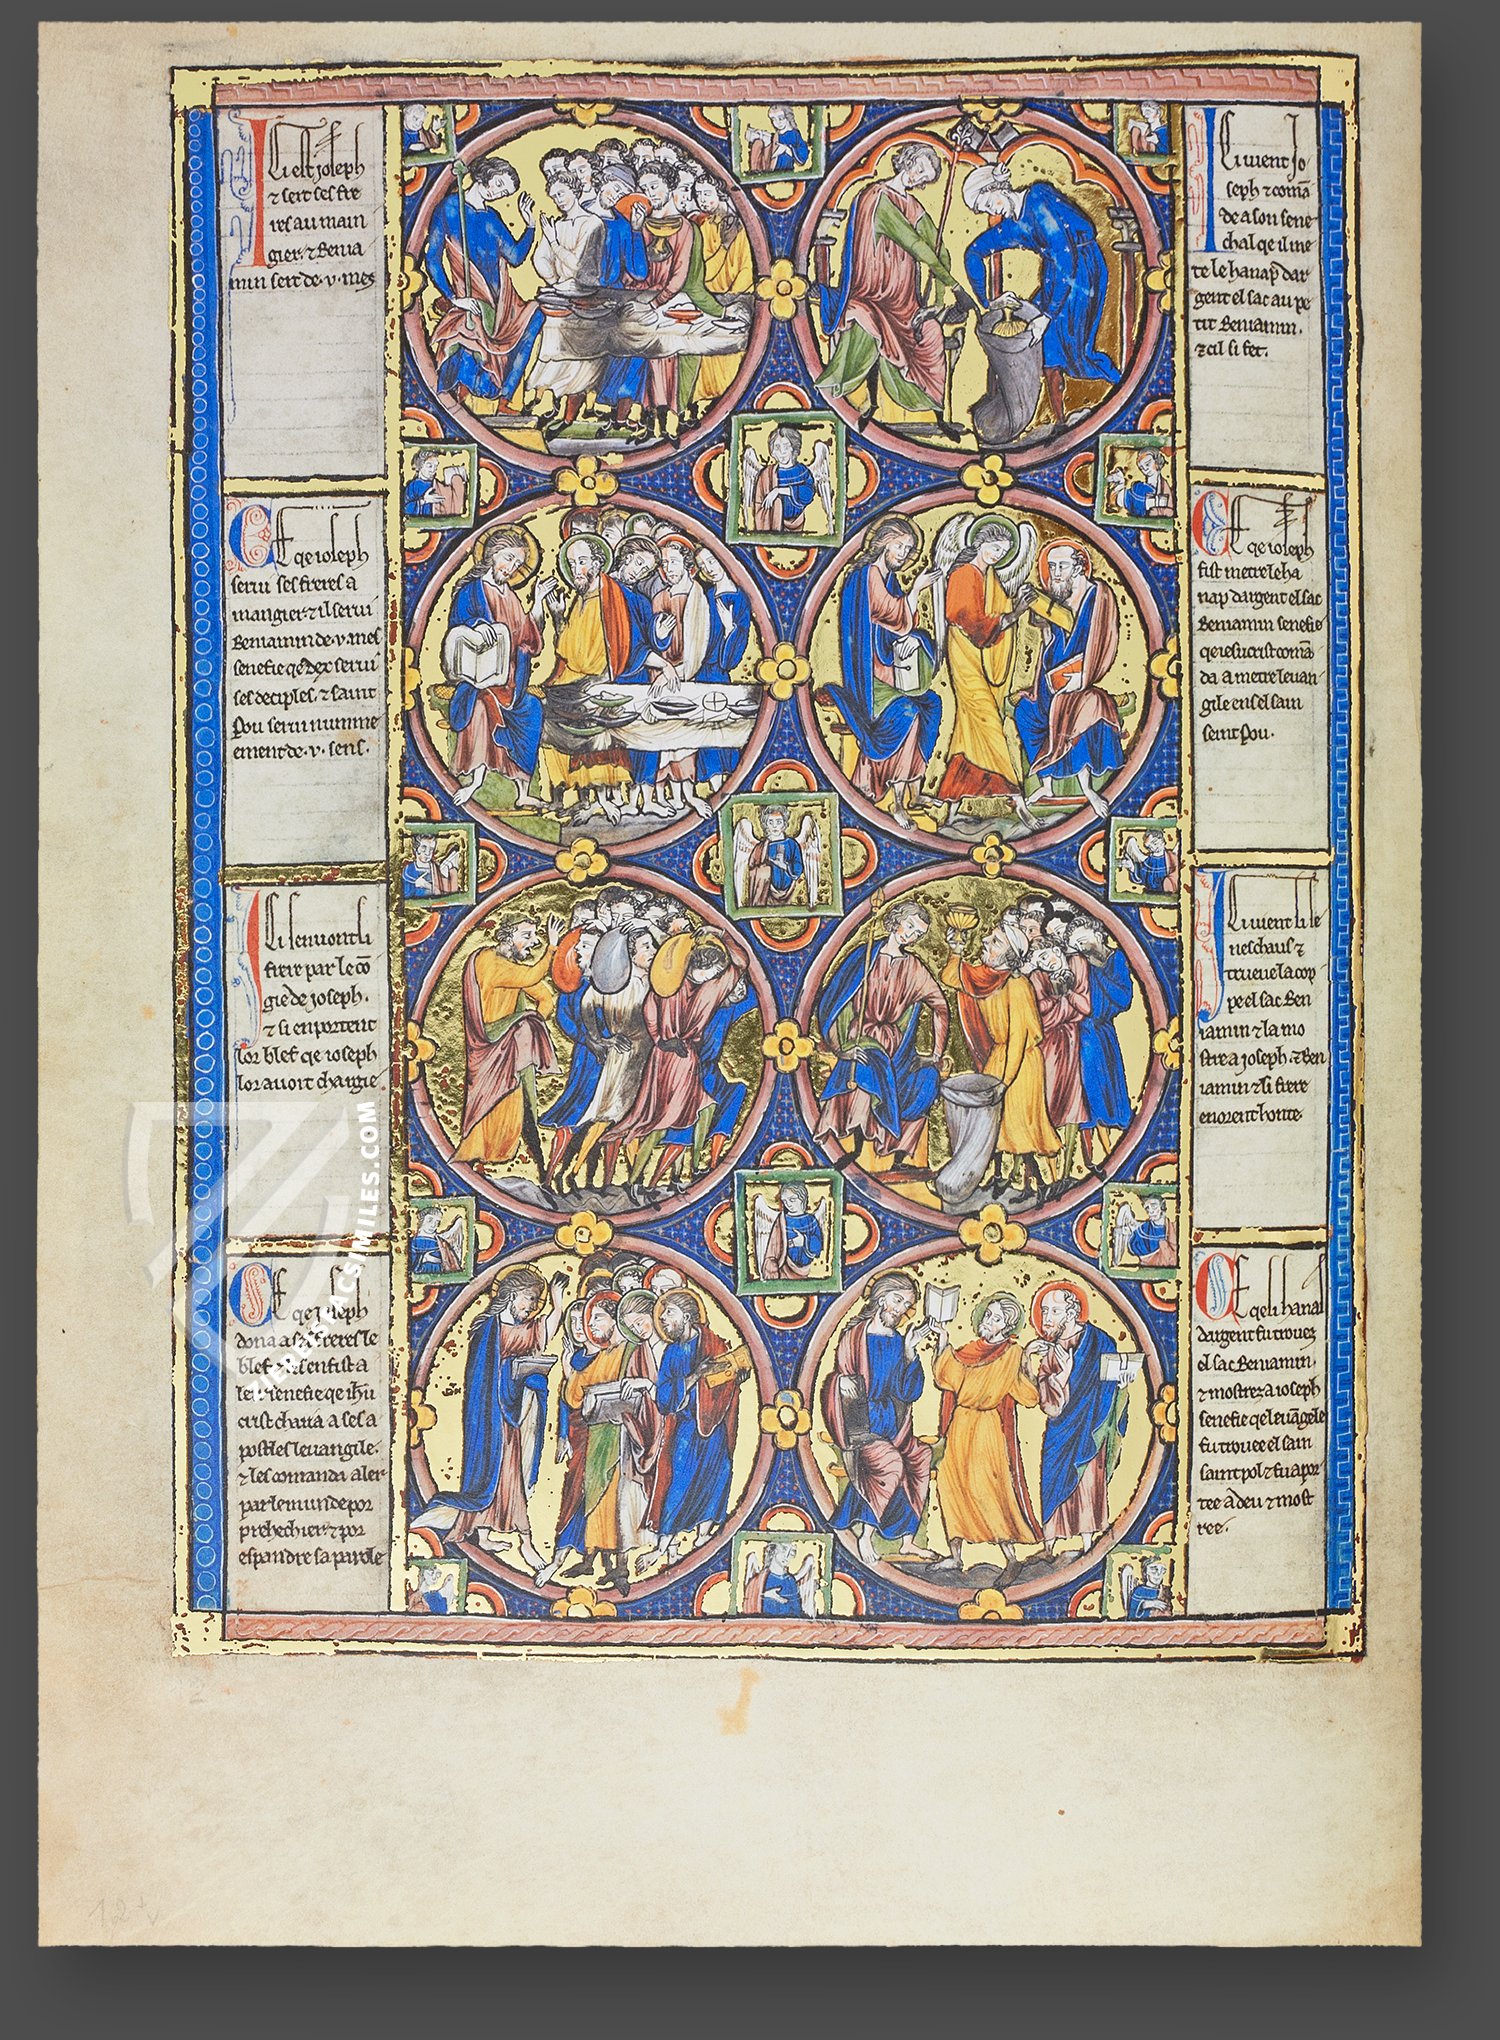 Ici est joseph
⁊ sert ses fre
res au main
gier. ⁊ Benia
min sert de .v. mes
Ce qe ioseph
serui ses freres a
mangier. ⁊ il serui
Beniamin de .v. mes
senefie qe dex serui
ses deciples. ⁊ saint
Pou serui numme
ement de .v. sens.
Ici sen uont li
frere par le cō
gie de joseph.
⁊ si enportent
lor blef qe ioseph
lor auoit chargie
Ce qe ioseph
dona a ses freres le
blef
senefie qe ihū
crist charia a ses a
postles leuangile.
⁊ les comanda aler
par le munde por
prehechier. ⁊ por
espandre sa parole
Ici uient Jo
seph ⁊ comā
de a son sene
chal qe il me
te le hanap dar
gent el sac au pe
tit Beniamin.
⁊ cil si fet.
Ce qe ioseph
fist metre le ha
nap dargent el sac
Beniamin senefie
qe iesucrist comā
da a metre leuan
gile en sel sain
seint Pou.
Ici uient li se
neschaus ⁊
trueue la cop
pe el sac Ben
iamin ⁊ la mo
stre a joseph. ⁊ Ben
iamin ⁊ li frere
en orent honte.
Ce qe li hanal
dargent fu trouez
el sac Beniamin.
⁊ mostrez a ioseph
senefie qe leuāgele
fu trouee el sain
saint pol ⁊ fu apor
tee a deu ⁊ most
ree.
12v
ZIEREIS FACSIMILES.COM